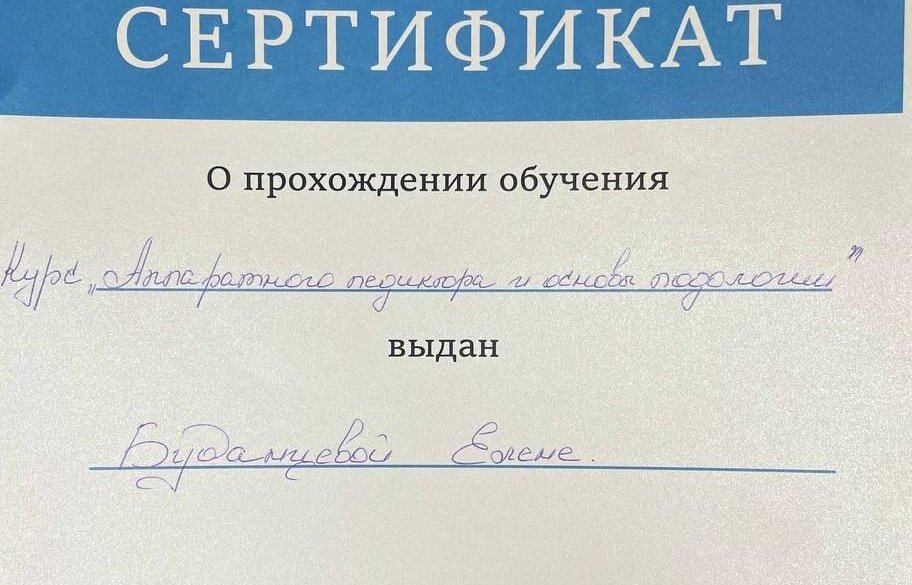 СЕРТИФИКАТ
О прохождении обучения
Курс „Аппаратного педикюра и основы подологии"
выдан
Буданцевой Елене.